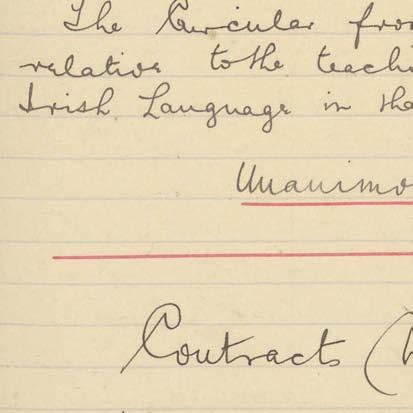 The Circular from
relative to the teachi
Irish Language in the
Unanimo
Contracts (